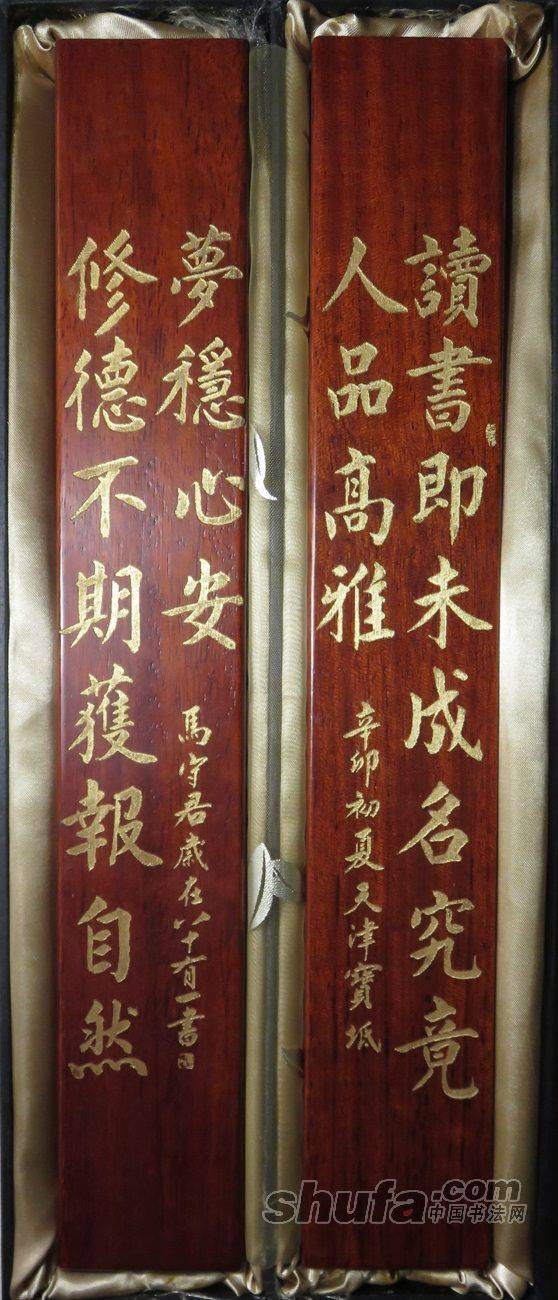 讀書即未成名究竟
人品髙雅
辛卯初夏天津寶坻
修德不期獲報自然
夢穩心安
馬守君歲在八十有一書
shufa.com
中国书法网